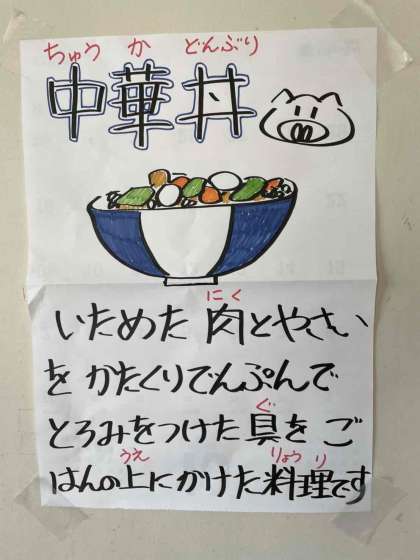 ちゅう か どんぶり
中華丼
にく
いためた 肉とやさい
を かたくりでんぷんで
ぐ
とろみをつけた 具を ご
うえ りょう り
はんの上にかけた 料理です